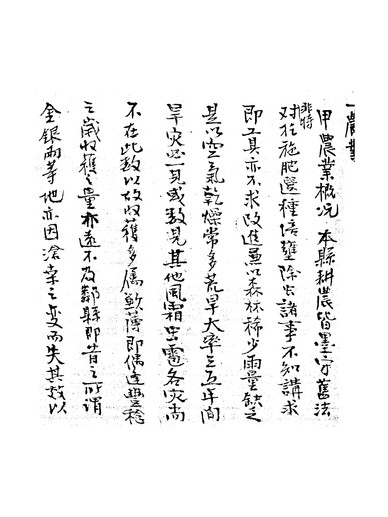 一農業
甲 農業概況 本縣耕農皆墨守舊法
非特對於施肥選種培壅除虫諸事不知講求
即工具亦不求改進兼以森林稀少雨量缺乏
是以空氣乾燥常多荒旱大率三五年間
旱灾必一見或数見其他風霜虫雹各灾尚
不在此数以故收獲多屬歉薄即偶逢豐稔
之歲收穫之量亦遠不及鄰縣即昔之所謂
金銀兩等地亦因滄桑之变而失其效以